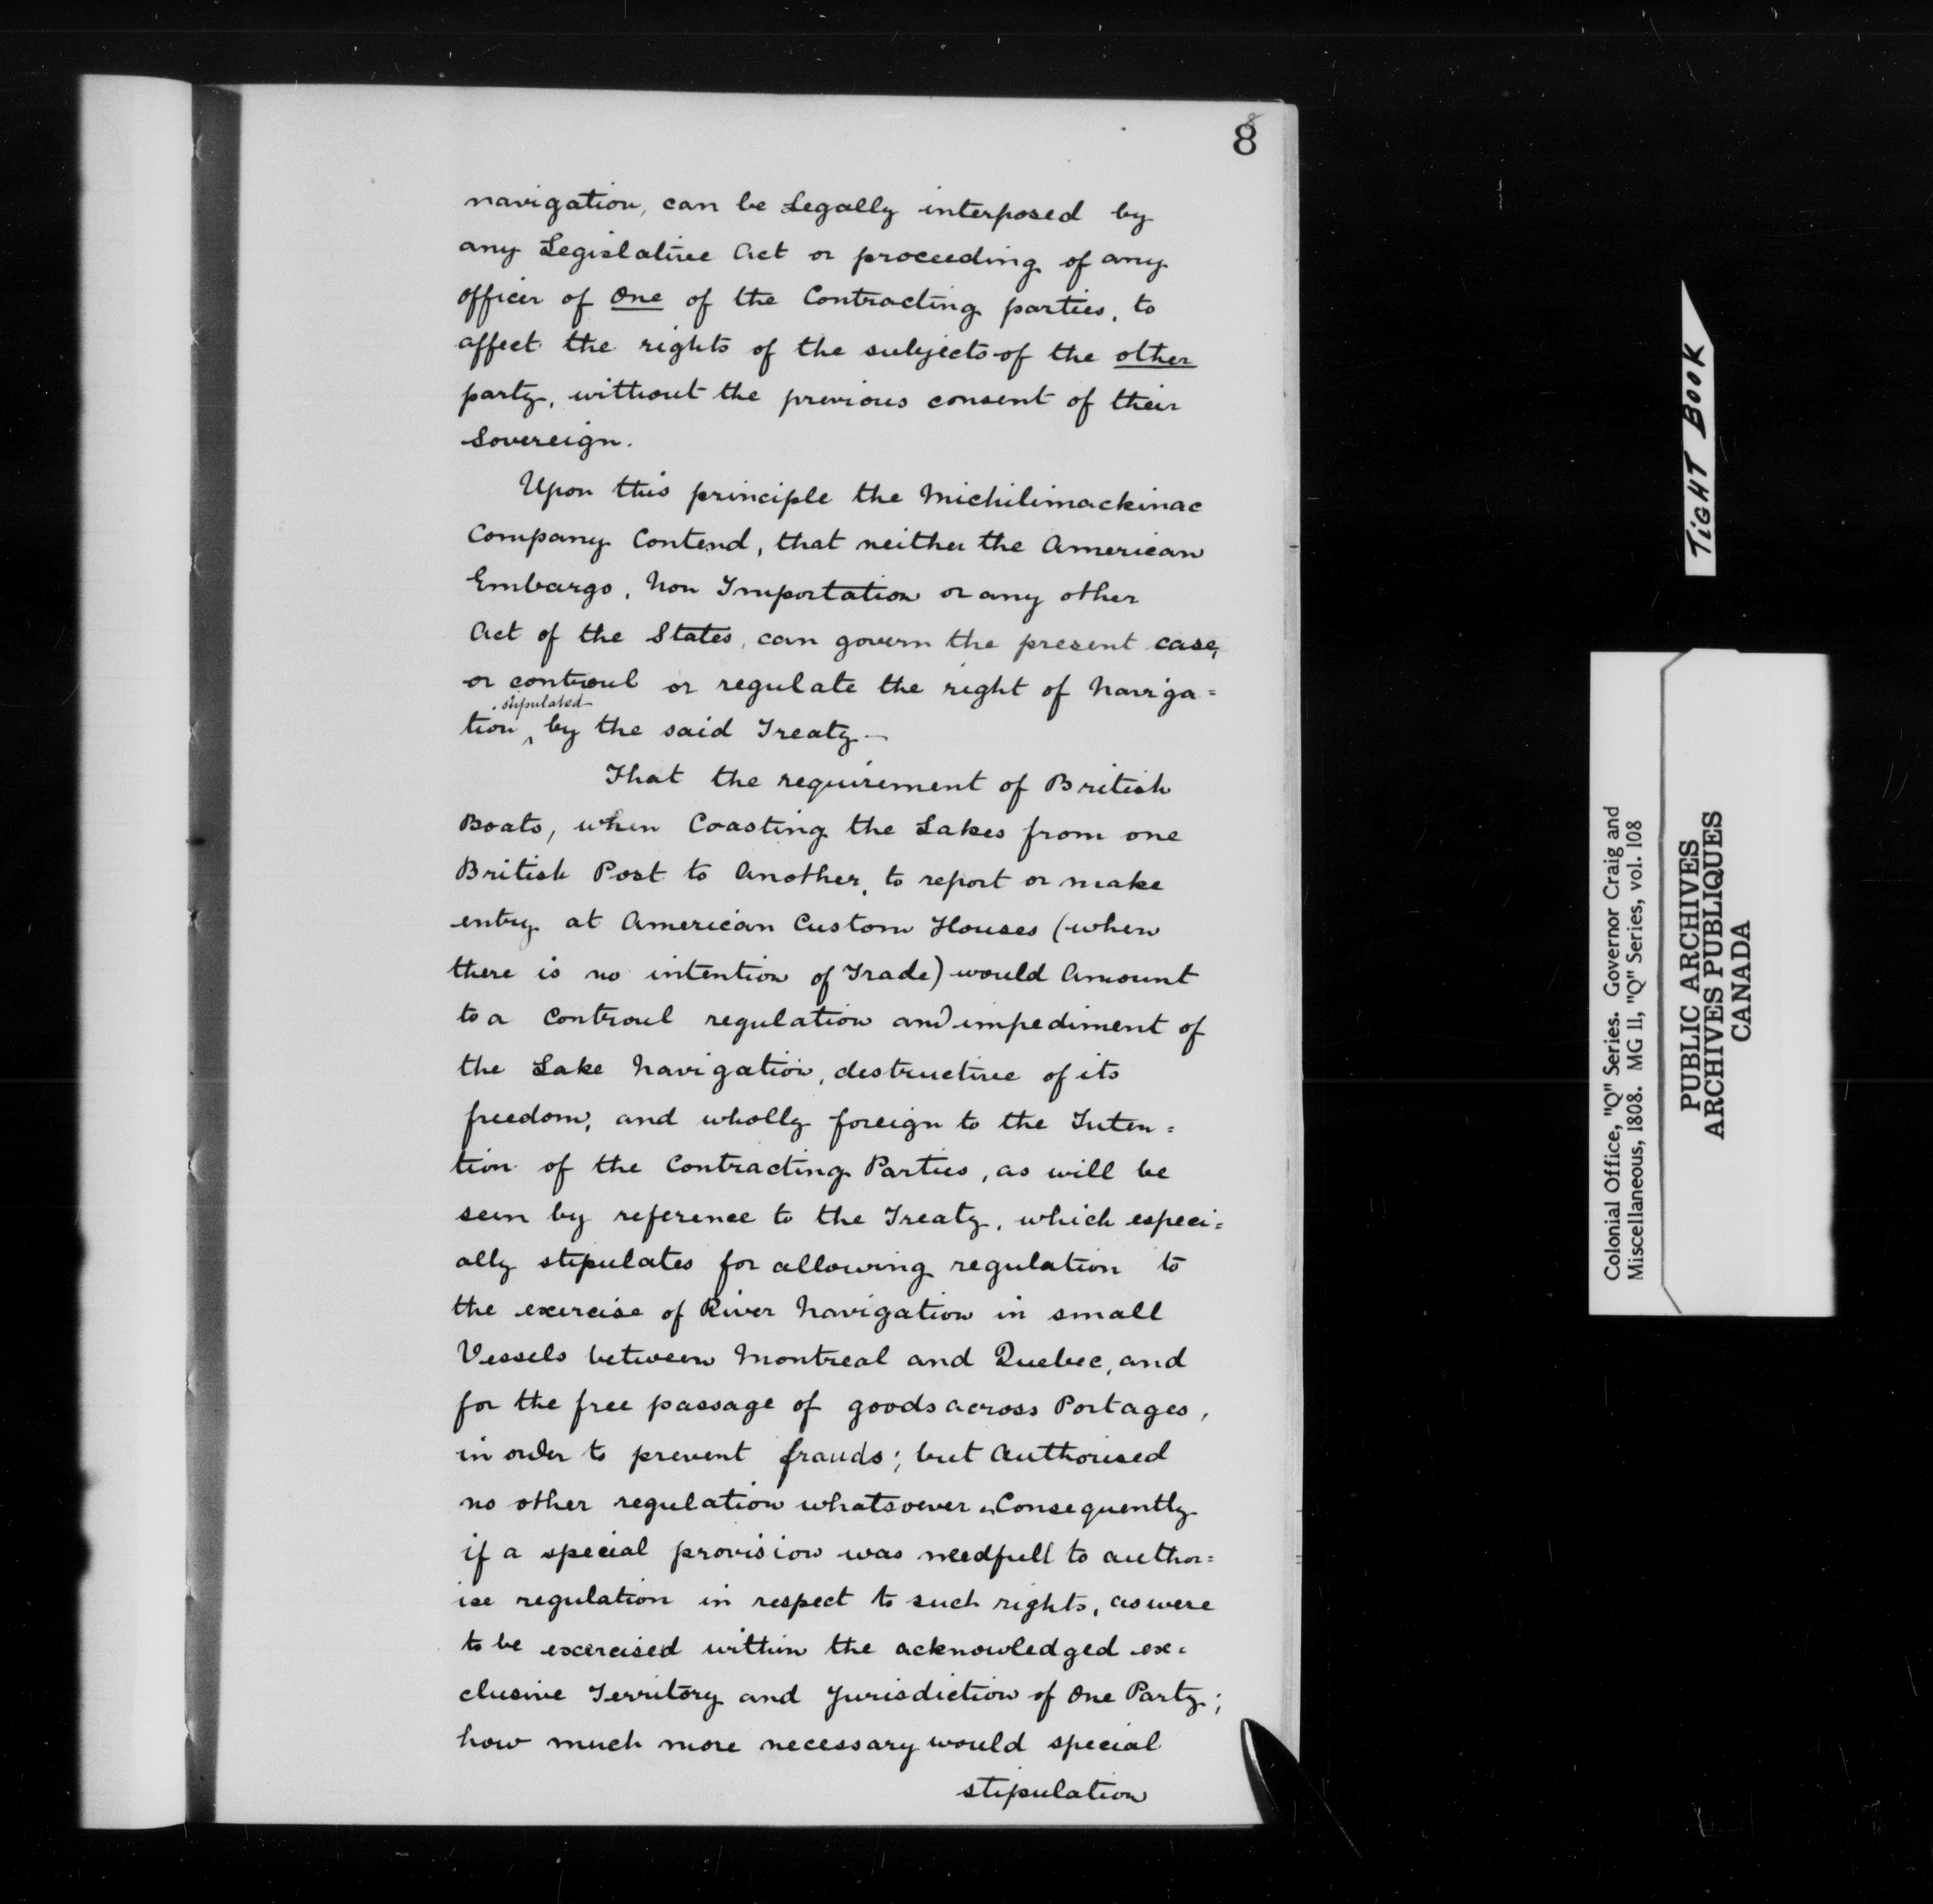 8
8
navigation, can be Legally interposed by
any Legislative Act or proceeding of any
officer of One of the Contracting parties, to
affect the rights of the subjects of the other
party, without the previous consent of their
Sovereign.
Upon this principle the Michilimackinac
Company Contend, that neither the American
Embargo, Non Importation or any other
Act of the States, can govern the present case,
or controul or regulate the right of Naviga=
stipulated
tion ^ by the said Treaty —
That the requirement of British
Boats, when Coasting the Lakes from one
British Post to Another, to report or make
entry at American Custom Houses (when
there is no intention of Trade) would Amount
to a Controul regulation and impediment of
the Lake Navigation, destructive of its
freedom, and wholly foreign to the Inten=
tion of the Contracting Parties, as will be
seen by reference to the Treaty, which especi=
ally stipulates for allowing regulation to
the exercise of River Navigation in small
Vessels between Montreal and Quebec, and
for the free passage of goods across Portages,
in order to prevent frauds; but Authorised
no other regulation whatsoever. Consequently
if a special provision was needfull to author=
ise regulation in respect to such rights, as were
to be exercised within the acknowledged ex=
clusive Territory and Jurisdiction of One Party;
how much more necessary would special
stipulation
TIGHT BOOK
Colonial Office, "Q" Series. Governor Craig and
Miscellaneous, 1808. MG 11, "Q" Series, vol. 108
PUBLIC ARCHIVES
ARCHIVES PUBLIQUES
CANADA